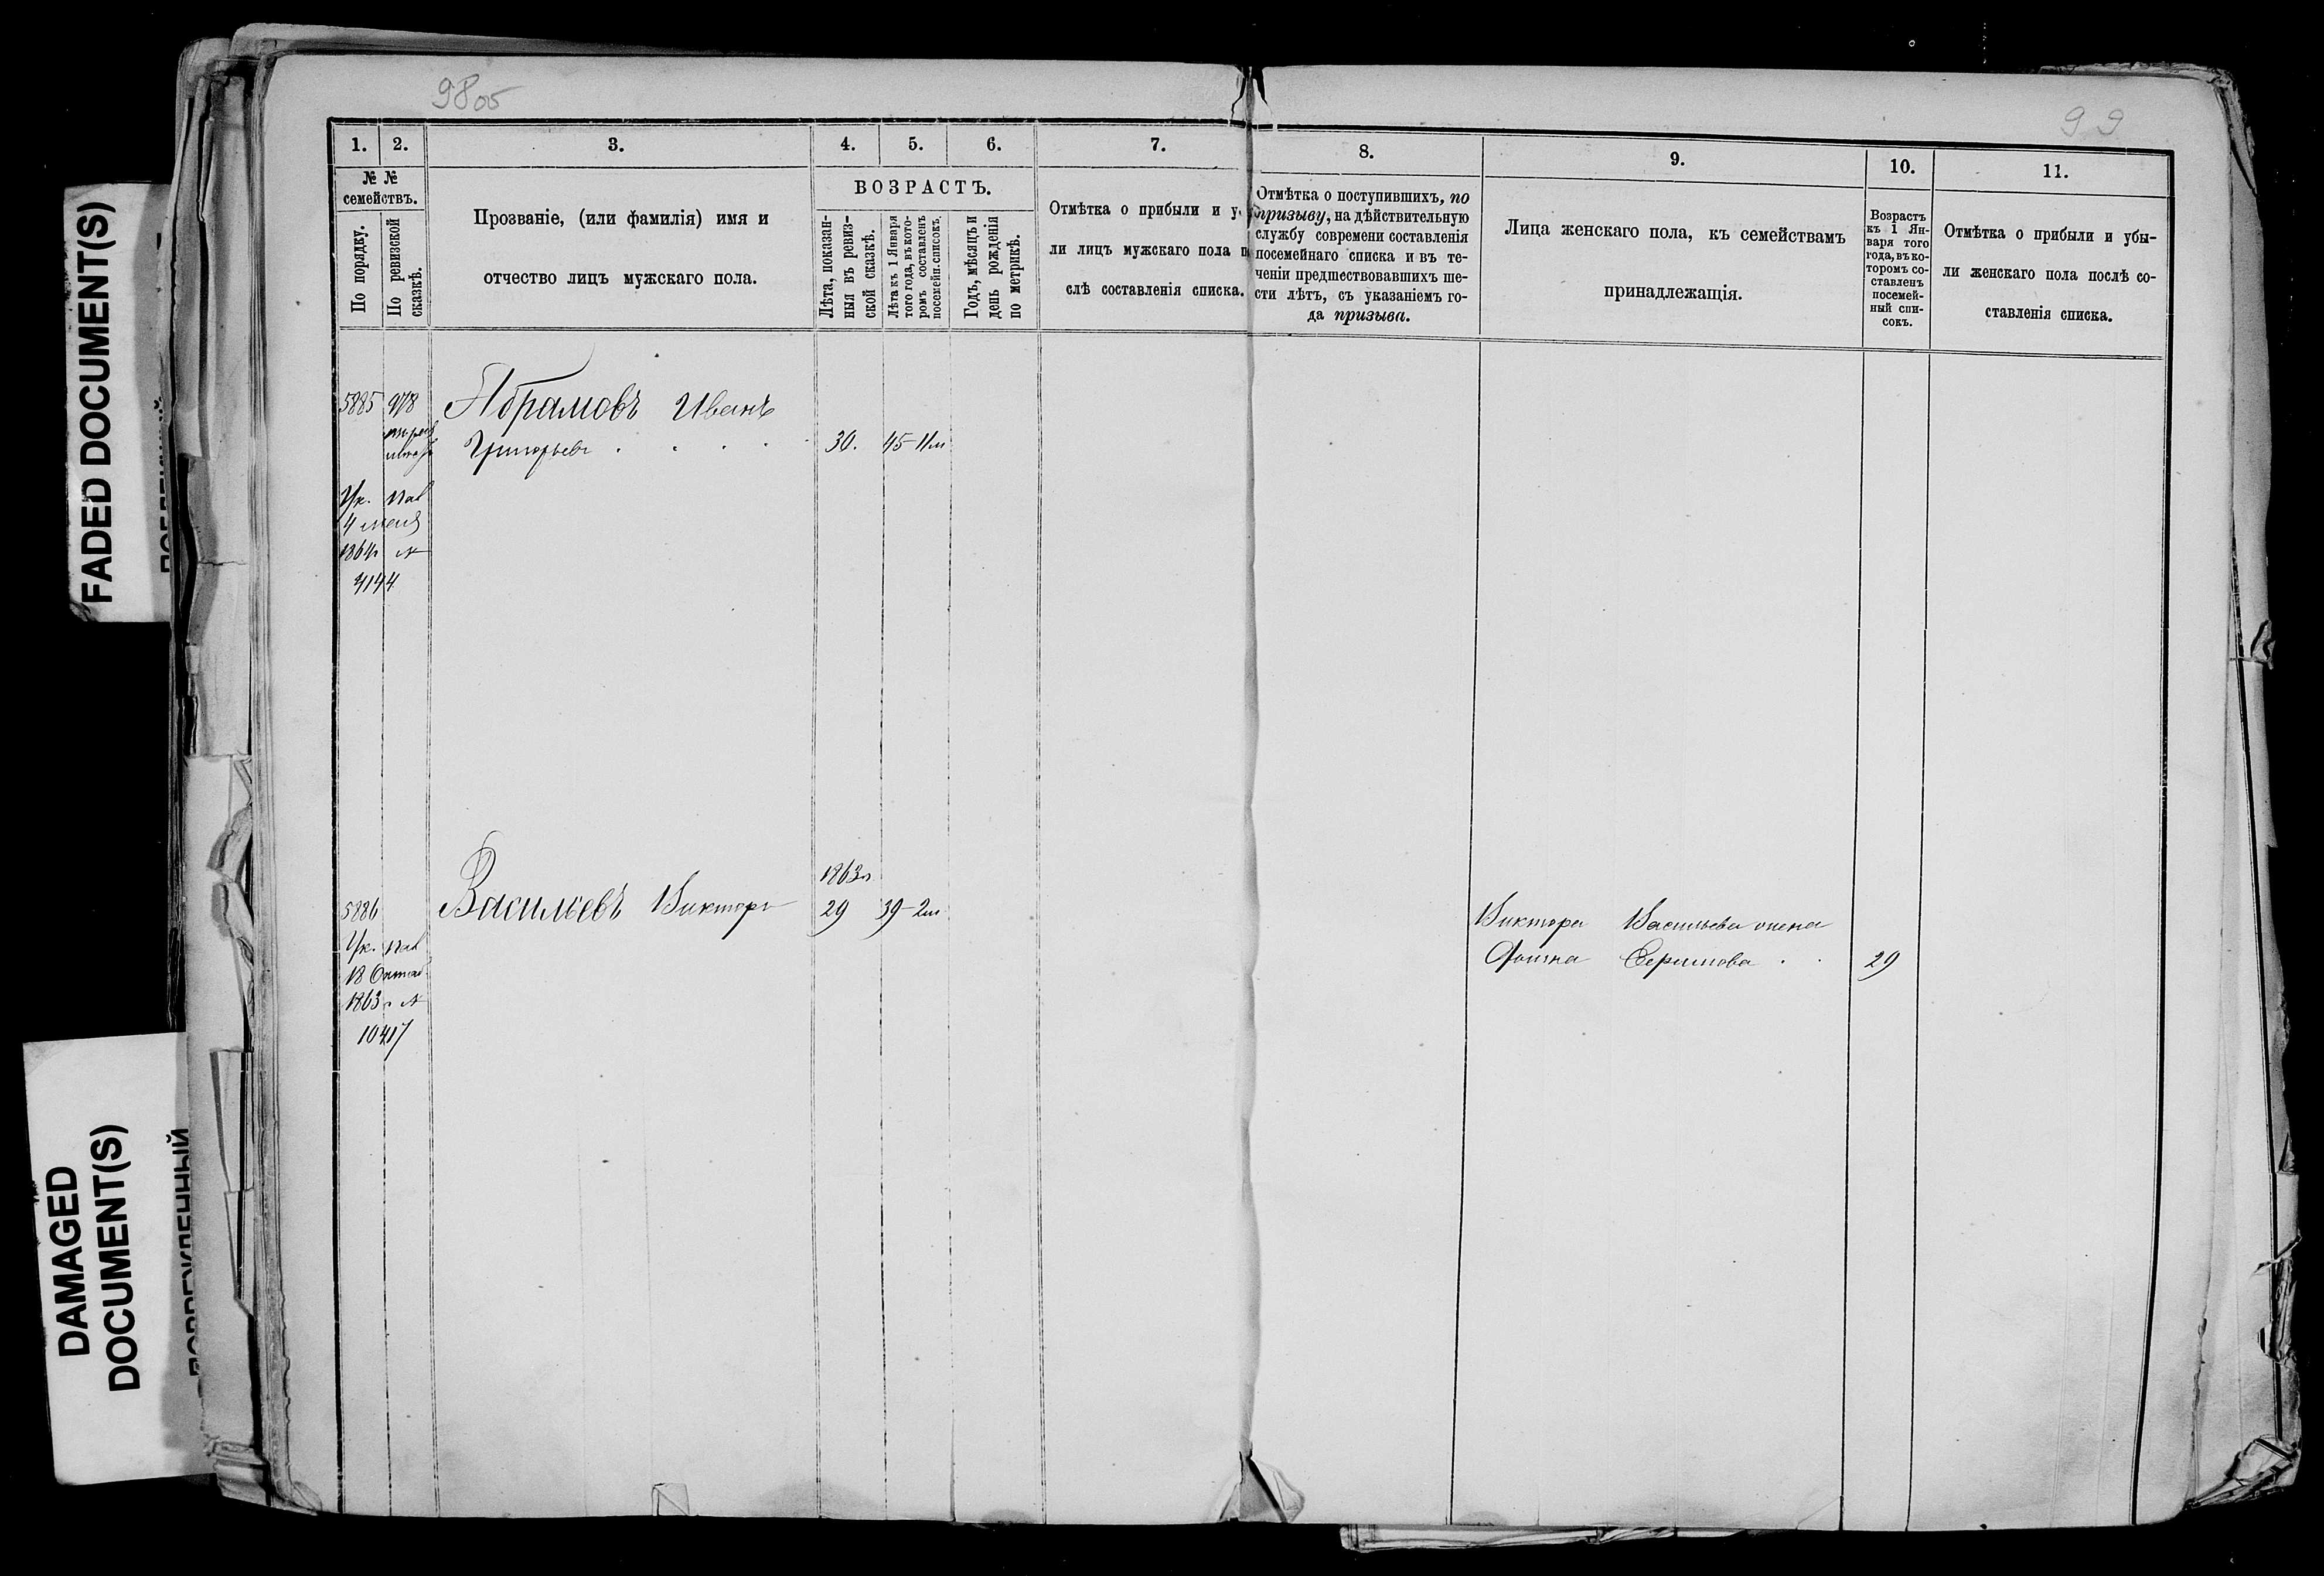 98об
99
1. 2. 3. 4. 5. 6. 7. 8. 9. 10. 11.
№ №
семействъ.
По порядку.
По ревизской
сказкѣ.
Прозваніе, (или фамилія) имя и
отчество лицъ мужскаго пола.
ВОЗРАСТЪ.
Лѣта, показан-
ныя въ ревиз-
ской сказкѣ.
Лѣта къ 1 Января
того года, въ кото-
ромъ составленъ
посемейн. списокъ.
Годъ, мѣсяцъ и
день рожденія
по метрикѣ.
Отмѣтка о прибыли и у
ли лицъ мужскаго пола п
слѣ составленія списка.
Отмѣтка о поступившихъ, по
призыву, на дѣйствительную
службу современи составленія
посемейнаго списка и въ те-
ченіи предшествовавшихъ ше-
сти лѣтъ, съ указаніемъ го-
да призыва.
Лица женскаго пола, къ семействамъ
принадлежащія.
Возрастъ
къ 1 Ян-
варя того
года, въ ко-
торомъ со-
ставленъ
посемей-
ный спи-
сокъ.
Отмѣтка о прибыли и убы-
ли женскаго пола послѣ со-
ставленія списка.
5885 978 Абрамовъ Иванъ
Григорьевъ 30. 45-11м
Ук. Пал
4 мая
1864г №
4144
1863г
5886 Васильевъ Викторъ 29 39-2м
Виктора Васильева жена
Ук. Пал
Фаина Ефимова 29
18 Октяб
1863г №
10417
FADED DOCUMENT(S)
DAMAGED
DOCUMENT(S)
ПОВРЕЖДЕННЫЙ